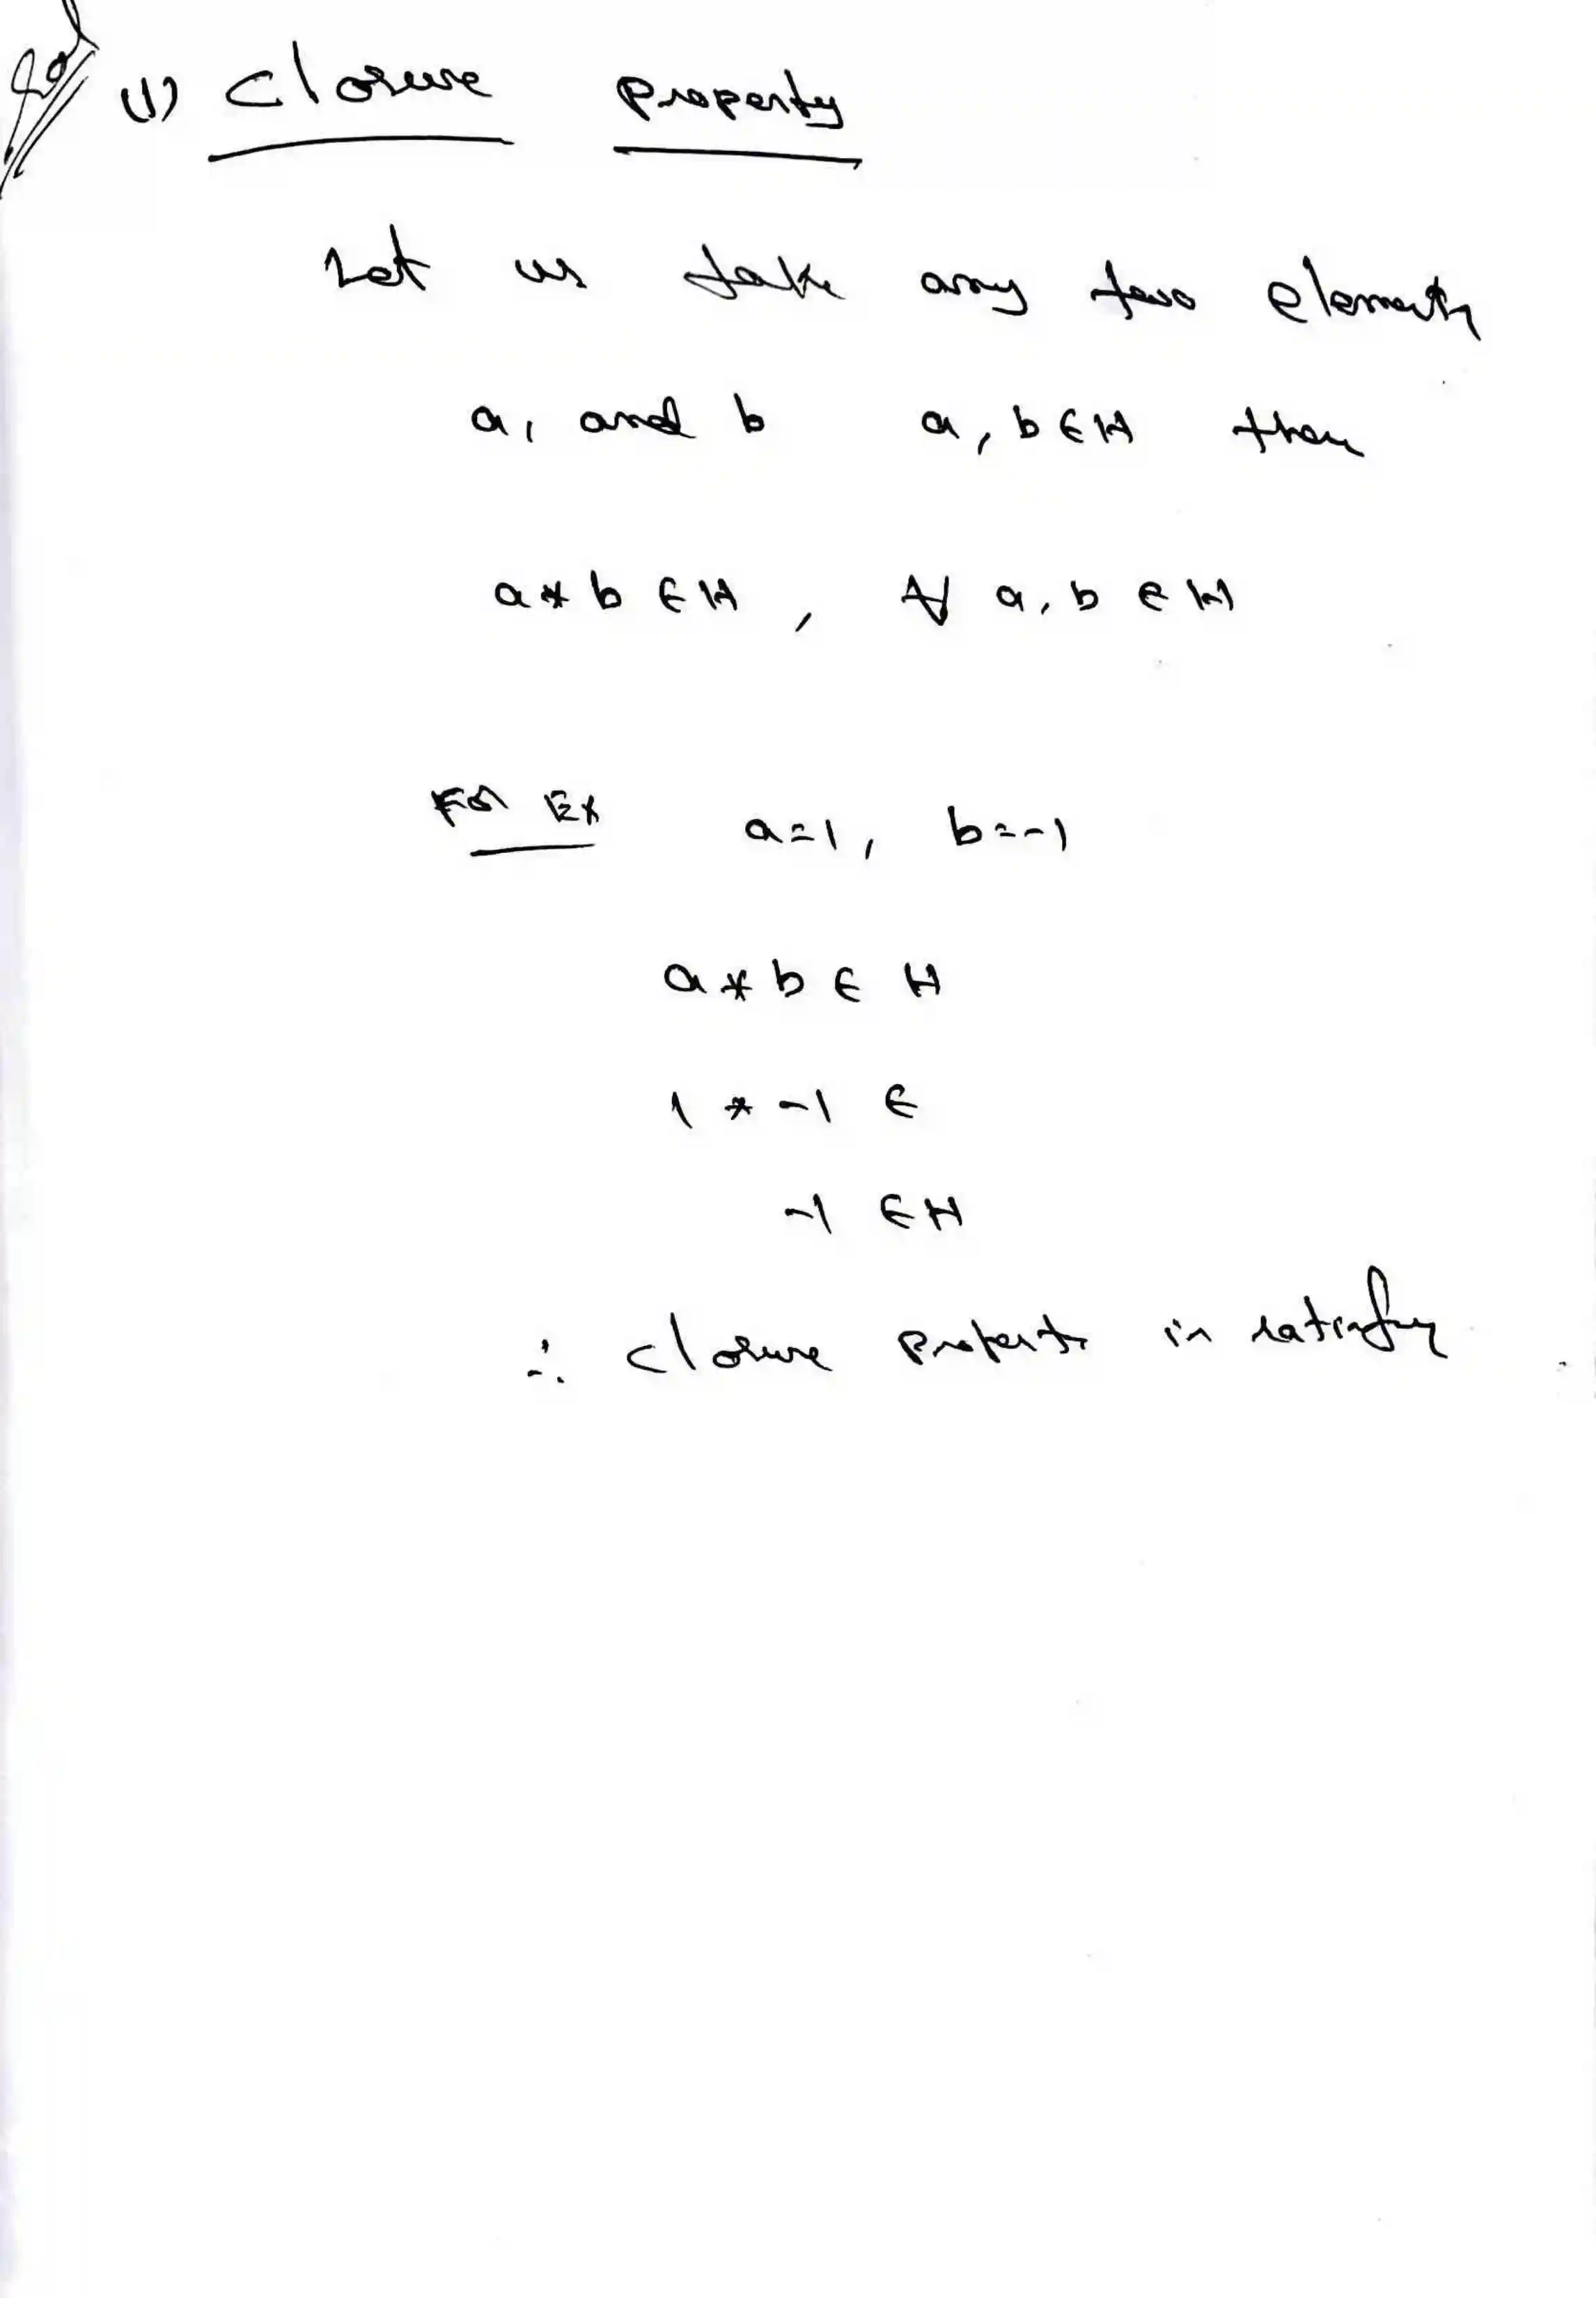 Sol (1) Closure property
Let us take any two elements
a, and b a, b ∈ H then
a * b ∈ H , ∀ a, b ∈ H
For Ex a = 1, b = -1
a * b ∈ H
1 * -1 ∈
-1 ∈ H
∴ closure property is satisfy